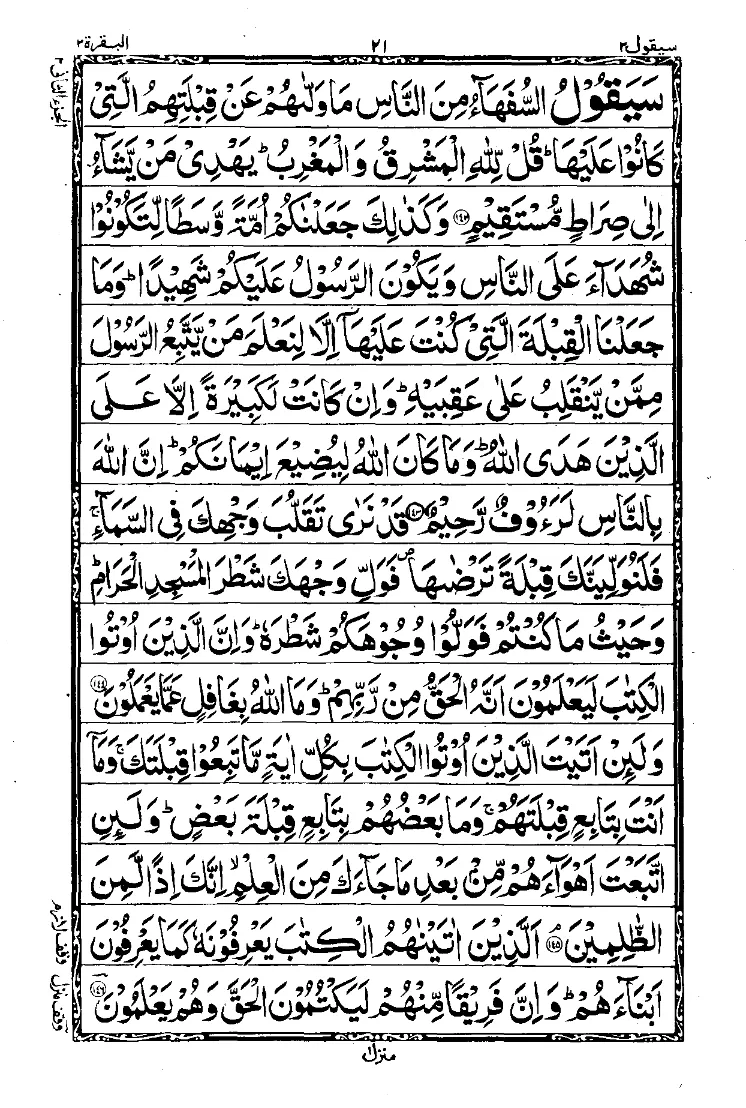 سيقول ٢
٢١
البقرة ٢
الجزء الثانى ٢
سَيَقُوْلُ السُّفَهَآءُ مِنَ النَّاسِ مَا وَلّٰىهُمْ عَنْ قِبْلَتِهِمُ الَّتِىْ
كَانُوْا عَلَيْهَا ؕ قُلْ لِّلّٰهِ الْمَشْرِقُ وَالْمَغْرِبُ ؕ يَهْدِىْ مَنْ يَّشَآءُ
اِلٰى صِرَاطٍ مُّسْتَقِيْمٍ ﴿١٤٢﴾ وَكَذٰلِكَ جَعَلْنٰكُمْ اُمَّةً وَّسَطًا لِّتَكُوْنُوْا
شُهَدَآءَ عَلَى النَّاسِ وَيَكُوْنَ الرَّسُوْلُ عَلَيْكُمْ شَهِيْدًا ؕ وَمَا
جَعَلْنَا الْقِبْلَةَ الَّتِىْ كُنْتَ عَلَيْهَآ اِلَّا لِنَعْلَمَ مَنْ يَّتَّبِعُ الرَّسُوْلَ
مِمَّنْ يَّنْقَلِبُ عَلٰى عَقِبَيْهِ ؕ وَاِنْ كَانَتْ لَكَبِيْرَةً اِلَّا عَلَى
الَّذِيْنَ هَدَى اللّٰهُ ؕ وَمَا كَانَ اللّٰهُ لِيُضِيْعَ اِيْمَانَكُمْ ؕ اِنَّ اللّٰهَ
بِالنَّاسِ لَرَءُوْفٌ رَّحِيْمٌ ﴿١٤٣﴾ قَدْ نَرٰى تَقَلُّبَ وَجْهِكَ فِى السَّمَآءِ ۚ
فَلَنُوَلِّيَنَّكَ قِبْلَةً تَرْضٰىهَا ۪ فَوَلِّ وَجْهَكَ شَطْرَ الْمَسْجِدِ الْحَرَامِ ؕ
وَحَيْثُ مَا كُنْتُمْ فَوَلُّوْا وُجُوْهَكُمْ شَطْرَهٗ ؕ وَاِنَّ الَّذِيْنَ اُوْتُوا
الْكِتٰبَ لَيَعْلَمُوْنَ اَنَّهُ الْحَقُّ مِنْ رَّبِّهِمْ ؕ وَمَا اللّٰهُ بِغَافِلٍ عَمَّا يَعْمَلُوْنَ ﴿١٤٤﴾
وَلَئِنْ اَتَيْتَ الَّذِيْنَ اُوْتُوا الْكِتٰبَ بِكُلِّ اٰيَةٍ مَّا تَبِعُوْا قِبْلَتَكَ ۚ وَمَآ
اَنْتَ بِتَابِعٍ قِبْلَتَهُمْ ۚ وَمَا بَعْضُهُمْ بِتَابِعٍ قِبْلَةَ بَعْضٍ ؕ وَلَئِنِ
اتَّبَعْتَ اَهْوَآءَهُمْ مِّنْۢ بَعْدِ مَا جَآءَكَ مِنَ الْعِلْمِ ۙ اِنَّكَ اِذًا لَّمِنَ
الظّٰلِمِيْنَ ﴿١٤٥﴾ اَلَّذِيْنَ اٰتَيْنٰهُمُ الْكِتٰبَ يَعْرِفُوْنَهٗ كَمَا يَعْرِفُوْنَ
اَبْنَآءَهُمْ ؕ وَاِنَّ فَرِيْقًا مِّنْهُمْ لَيَكْتُمُوْنَ الْحَقَّ وَهُمْ يَعْلَمُوْنَ ﴿١٤٦﴾
وقف لازم
وقف منزل
منزل ١